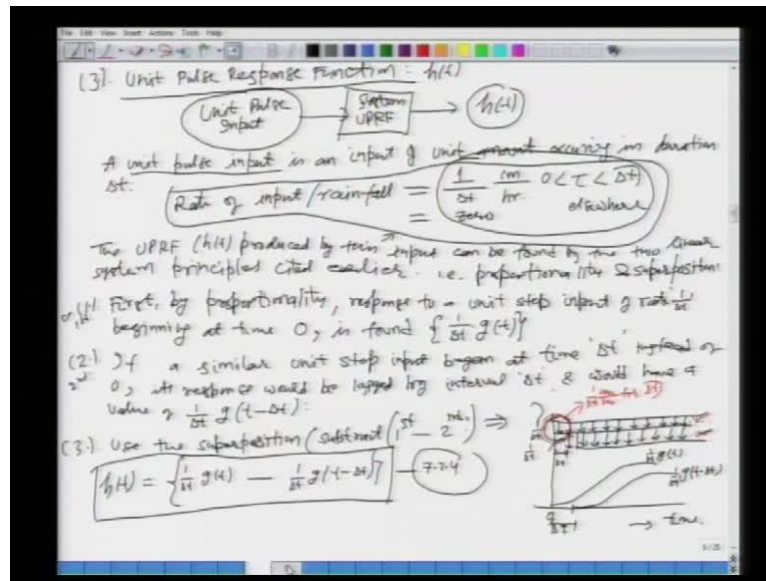 File Edit View Insert Actions Tools Help
(3). Unit Pulse Response Function : h(t)
Unit Pulse Input → System UPRF → h(t)
A unit pulse input is an input of unit amount occuring in duration
Δt.
Rate of input/rain-fall = 1/Δt cm/hr. 0 < τ < Δt
= zero elsewhere
The UPRF (h(t)) produced by this input can be found by the two linear
system principles cited earlier. i.e. proportionality & superposition.
or 1st (1). First, by proportionality, response to a unit step input of rate 1/Δt
beginning at time 0, is found {1/Δt g(t)}
2nd (2.) If a similar unit step input began at time 'Δt' instead of
0, its response would be lagged by interval 'Δt' & would have a
value of 1/Δt g(t-Δt).
(3.) Use the superposition (subtract (1st - 2nd.) ⇒
h(t) = {1/Δt g(t) - 1/Δt g(t-Δt)} — 7.2.4
1/Δt
1/Δt g(t)
1/Δt g(t-Δt)
Δt
→ time.